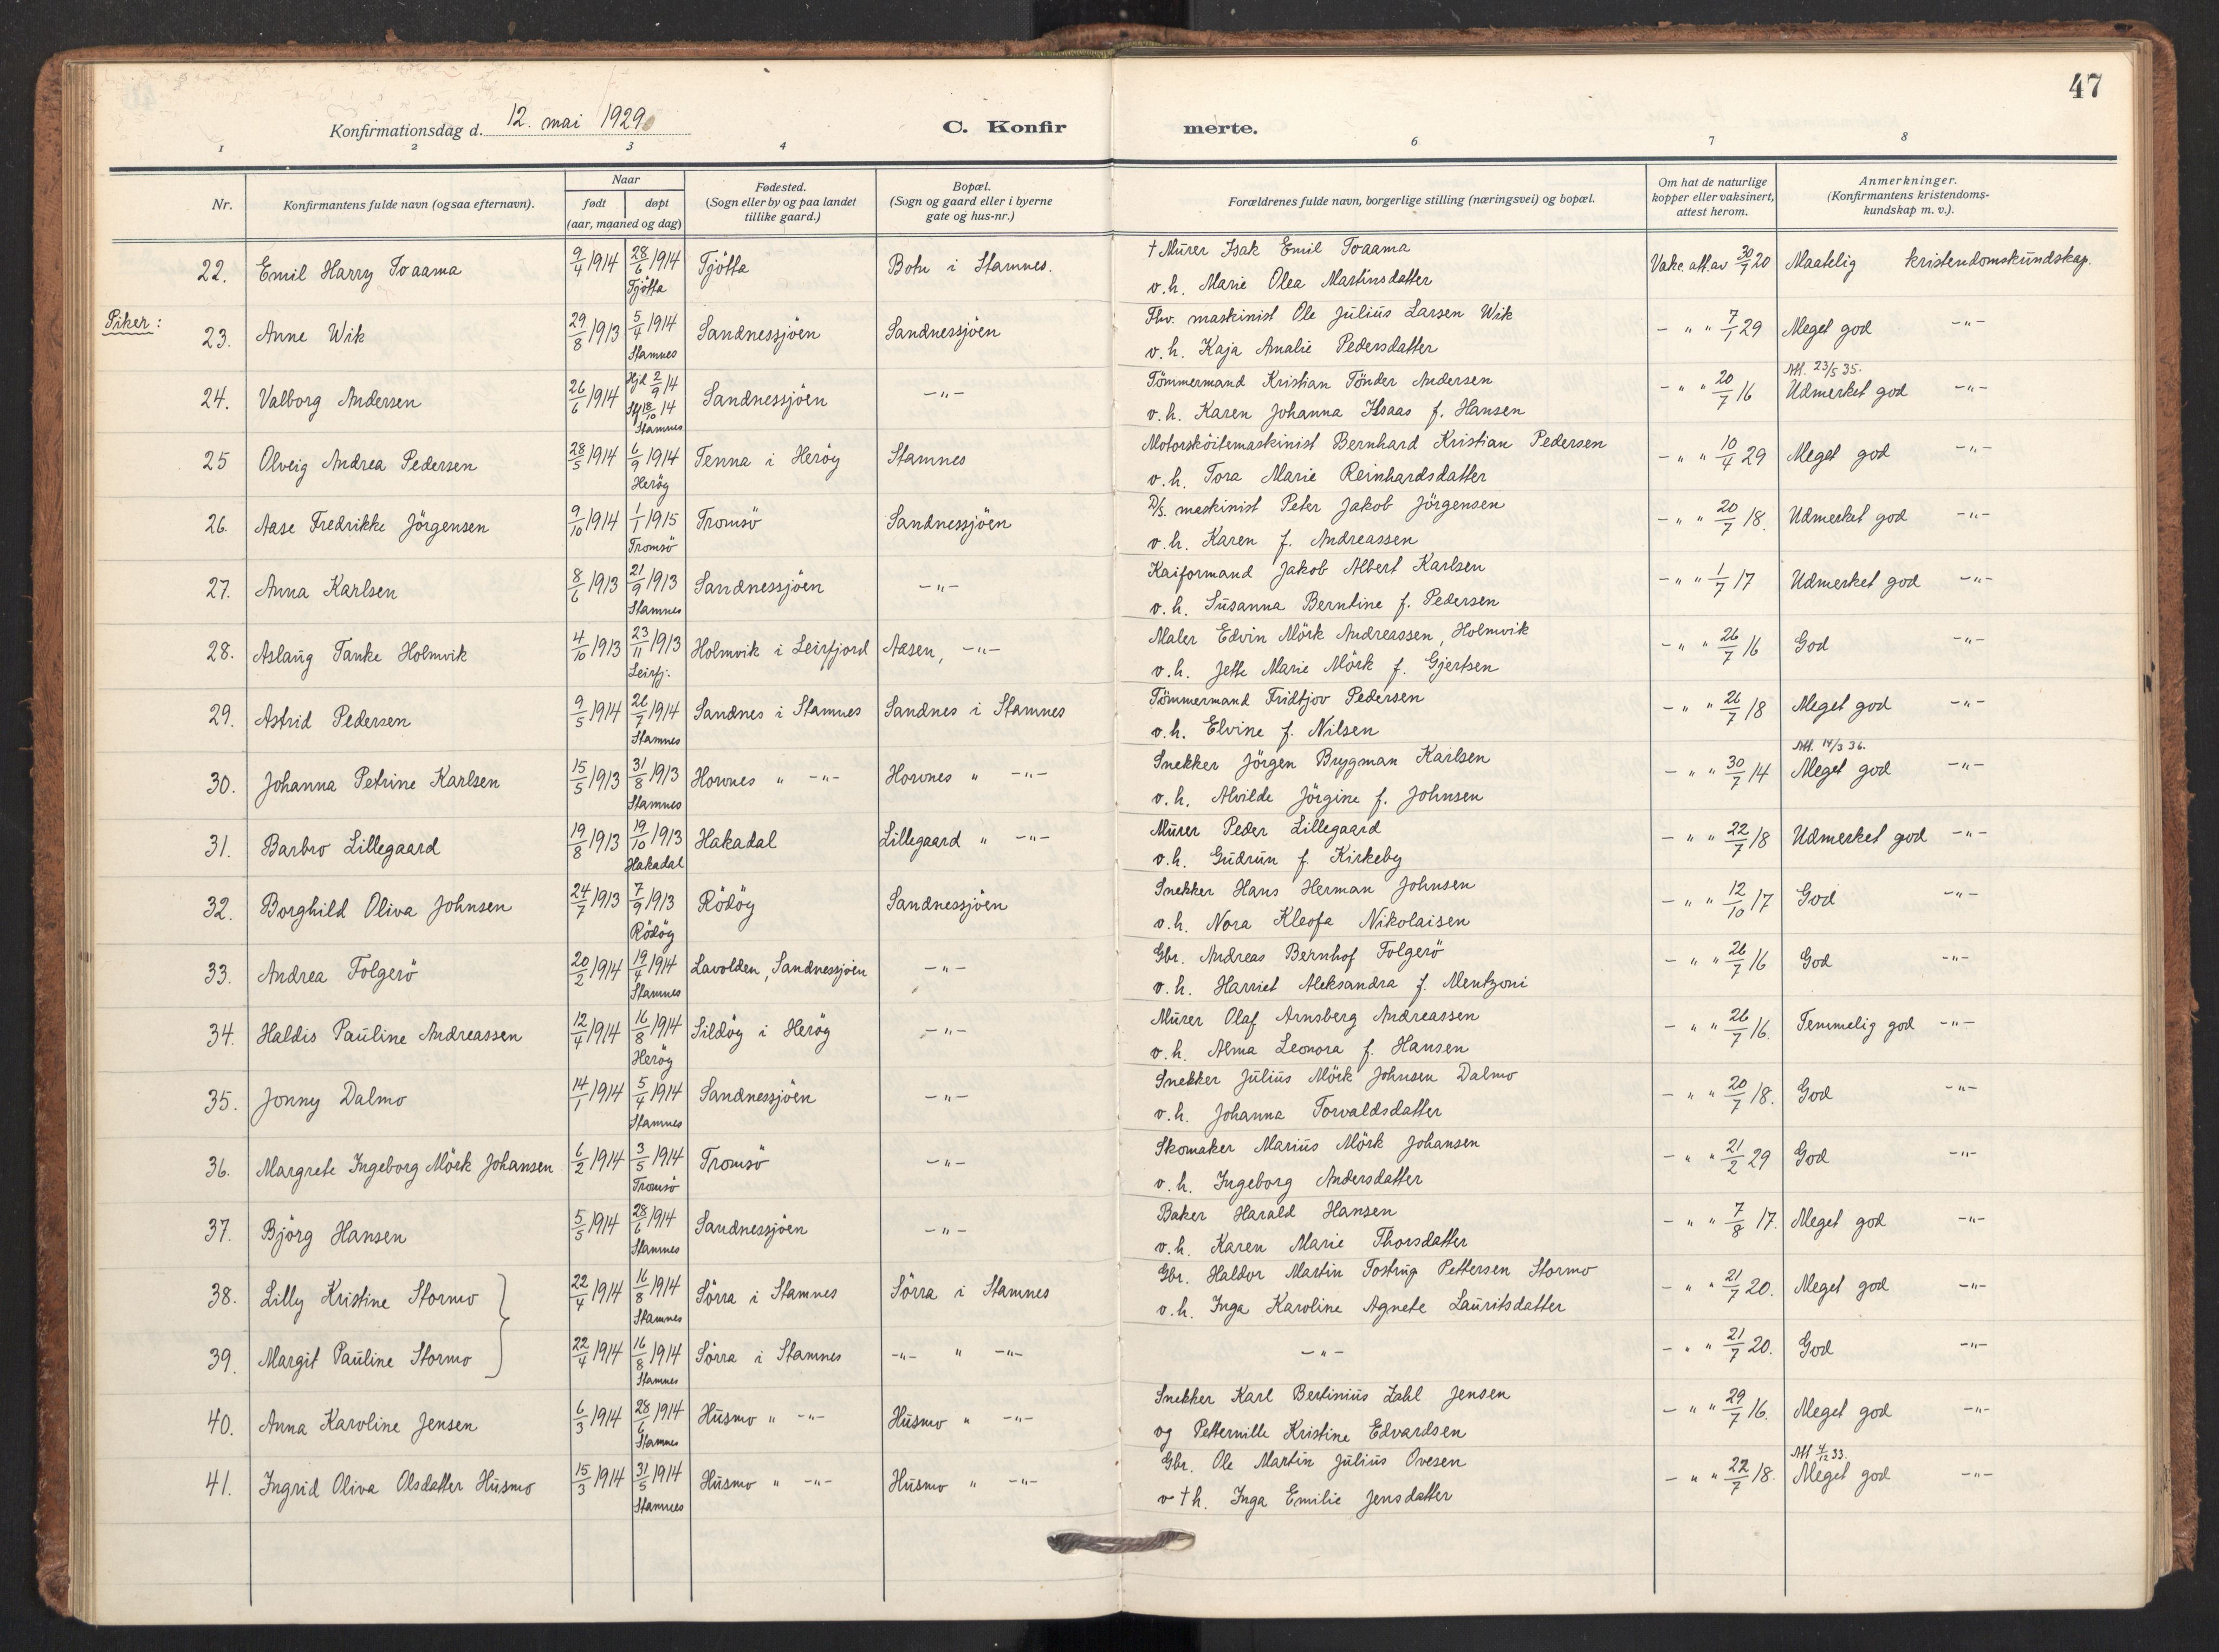 47
Konfirmationsdag d. 12. mai 1929
C. Konfirmerte.
1 2 3 4 6 7 8
Nr. | Konfirmantens fulde navn (ogsaa efternavn). | Naar født døpt (aar, maaned og dag) | Fødested. (Sogn eller by og paa landet tillike gaard.) | Bopæl. (Sogn og gaard eller i byerne gate og hus-nr.) | Forældrenes fulde navn, borgerlige stilling (næringsvei) og bopæl. | Om hat de naturlige kopper eller vaksinert, attest herom. | Anmerkninger. (Konfirmantens kristendomskundskap m. v.).
22. Emil Harry Toaama | 9/4 1914 | 28/6 1914 Tjötta | Tjötta | Botn i Stamnes. | † Murer Isak Emil Toaama v. h. Marie Olea Martinsdatter | Vakc. att. av 30/7 20 | Maatelig kristendomskundskap.
Piker:
23. Anne Wik | 29/8 1913 | 5/4 1914 Stamnes | Sandnessjöen | Sandnessjöen | Fhv. maskinist Ole Julius Larsen Wik v. h. Kaja Amalie Pedersdatter | - " " 7/1 29 | Meget god -"-
24. Valborg Andersen | 26/6 1914 | Hjd 2/9 14 St 18/10 14 Stamnes | Sandnessjöen | -"- | Tömmermand Kristian Tönder Andersen v. h. Karen Johanna Isaas f. Hansen | - " " 20/7 16 | Att. 23/5 35. Udmerket god -"-
25 Olveig Andrea Pedersen | 28/5 1914 | 6/9 1914 Heröy | Tenna i Heröy | Stamnes | Motorsköitemaskinist Bernhard Kristian Pedersen v. h. Tora Marie Reinhardsdatter | - " " 10/4 29 | Meget god -"-
26. Aase Fredrikke Jörgensen | 9/10 1914 | 1/1 1915 Tromsö | Tromsö | Sandnessjöen | D/S. maskinist Peter Jakob Jörgensen v. h. Karen f. Andreassen | - " " 20/7 18. | Udmerket god -"-
27. Anna Karlsen | 8/6 1913 | 21/9 1913 Stamnes | Sandnessjöen | -"- | Kaiformand Jakob Albert Karlsen v. h. Susanna Berntine f. Pedersen | - " " 1/7 17 | Udmerket god -"-
28. Aslaug Tanke Holmvik | 4/10 1913 | 23/11 1913 Leirfj. | Holmvik i Leirfjord | Aasen, -"- | Maler Edvin Mörk Andreassen, Holmvik v. h. Jette Marie Mörk f. Gjertsen | - " " 26/7 16 | God -"-
29. Astrid Pedersen | 9/5 1914 | 26/7 1914 Stamnes | Sandnes i Stamnes | Sandnes i Stamnes | Tömmermand Fridtjov Pedersen v. h. Elvine f. Nilsen | - " " 26/7 18 | Meget god -"-
30. Johanna Petrine Karlsen | 15/5 1913 | 31/8 1913 Stamnes | Horvnes " -"- | Horvnes " -"- | Snekker Jörgen Brygman Karlsen v. h. Alvilde Jörgine f. Johnsen | - " " 30/7 14 | Att. 14/3 36. Meget god -"-
31. Barbro Lillegaard | 19/8 1913 | 19/10 1913 Hakadal | Hakadal | Lillegaard " -"- | Murer Peder Lillegaard v. h. Gudrun f. Kirkeby | - " " 22/7 18 | Udmerket god -"-
32. Borghild Oliva Johnsen | 24/7 1913 | 7/9 1913 Rödöy | Rödöy | Sandnessjöen | Snekker Hans Herman Johnsen v. h. Nora Kleofa Nikolaisen | - " " 12/10 17 | God -"-
33. Andrea Folgerö | 20/2 1914 | 19/4 1914 Stamnes | Lavolden, Sandnessjöen | -"- | Gbr. Andreas Bernhof Folgerö v. h. Harriet Aleksandra f. Mentzoni | - " " 26/7 16 | God -"-
34. Haldis Pauline Andreassen | 12/4 1914 | 16/8 1914 Heröy | Sildöy i Heröy | -"- | Murer Olaf Arnsberg Andreassen v. h. Alma Leonora f. Hansen | - " " 26/7 16. | Temmelig god -"-
35. Jonny Dalmo | 14/1 1914 | 5/4 1914 Stamnes | Sandnessjöen | -"- | Snekker Julius Mörk Johnsen Dalmo v. h. Johanna Torvaldsdatter | - " " 20/7 18. | God -"-
36. Margrete Ingeborg Mörk Johansen | 6/2 1914 | 3/5 1914 Tromsö | Tromsö | -"- | Skomaker Marius Mörk Johansen v. h. Ingeborg Andersdatter | - " " 21/2 29 | God -"-
37. Björg Hansen | 5/5 1914 | 28/6 1914 Stamnes | Sandnessjöen | -"- | Baker Harald Hansen v. h. Karen Marie Thorsdatter | - " " 7/8 17. | Meget god -"-
38. Lilly Kristine Stormo | 22/4 1914 | 16/8 1914 Stamnes | Sörra i Stamnes | Sörra i Stamnes | Gbr. Haldor Martin Tostrup Pettersen Stormo v. h. Inga Karoline Agnete Lauritsdatter | - " " 21/7 20. | Meget god -"-
39. Margit Pauline Stormo | 22/4 1914 | 16/8 1914 Stamnes | Sörra i Stamnes | -"- " -"- | -"- | - " " 21/7 20. | God -"-
40. Anna Karoline Jensen | 6/3 1914 | 28/6 1914 Stamnes | Husmo " -"- | Husmo " -"- | Snekker Karl Bertinius Zahl Jensen og Petternille Kristine Edvardsen | - " " 29/7 16. | Meget god -"-
41. Ingrid Oliva Olsdatter Husmo | 15/3 1914 | 31/5 1914 Stamnes | Husmo " -"- | Husmo " -"- | Gbr. Ole Martin Julius Ovesen v † h. Inga Emilie Jensdatter | - " " 22/7 18. | Att 4/12 33. Meget god -"-